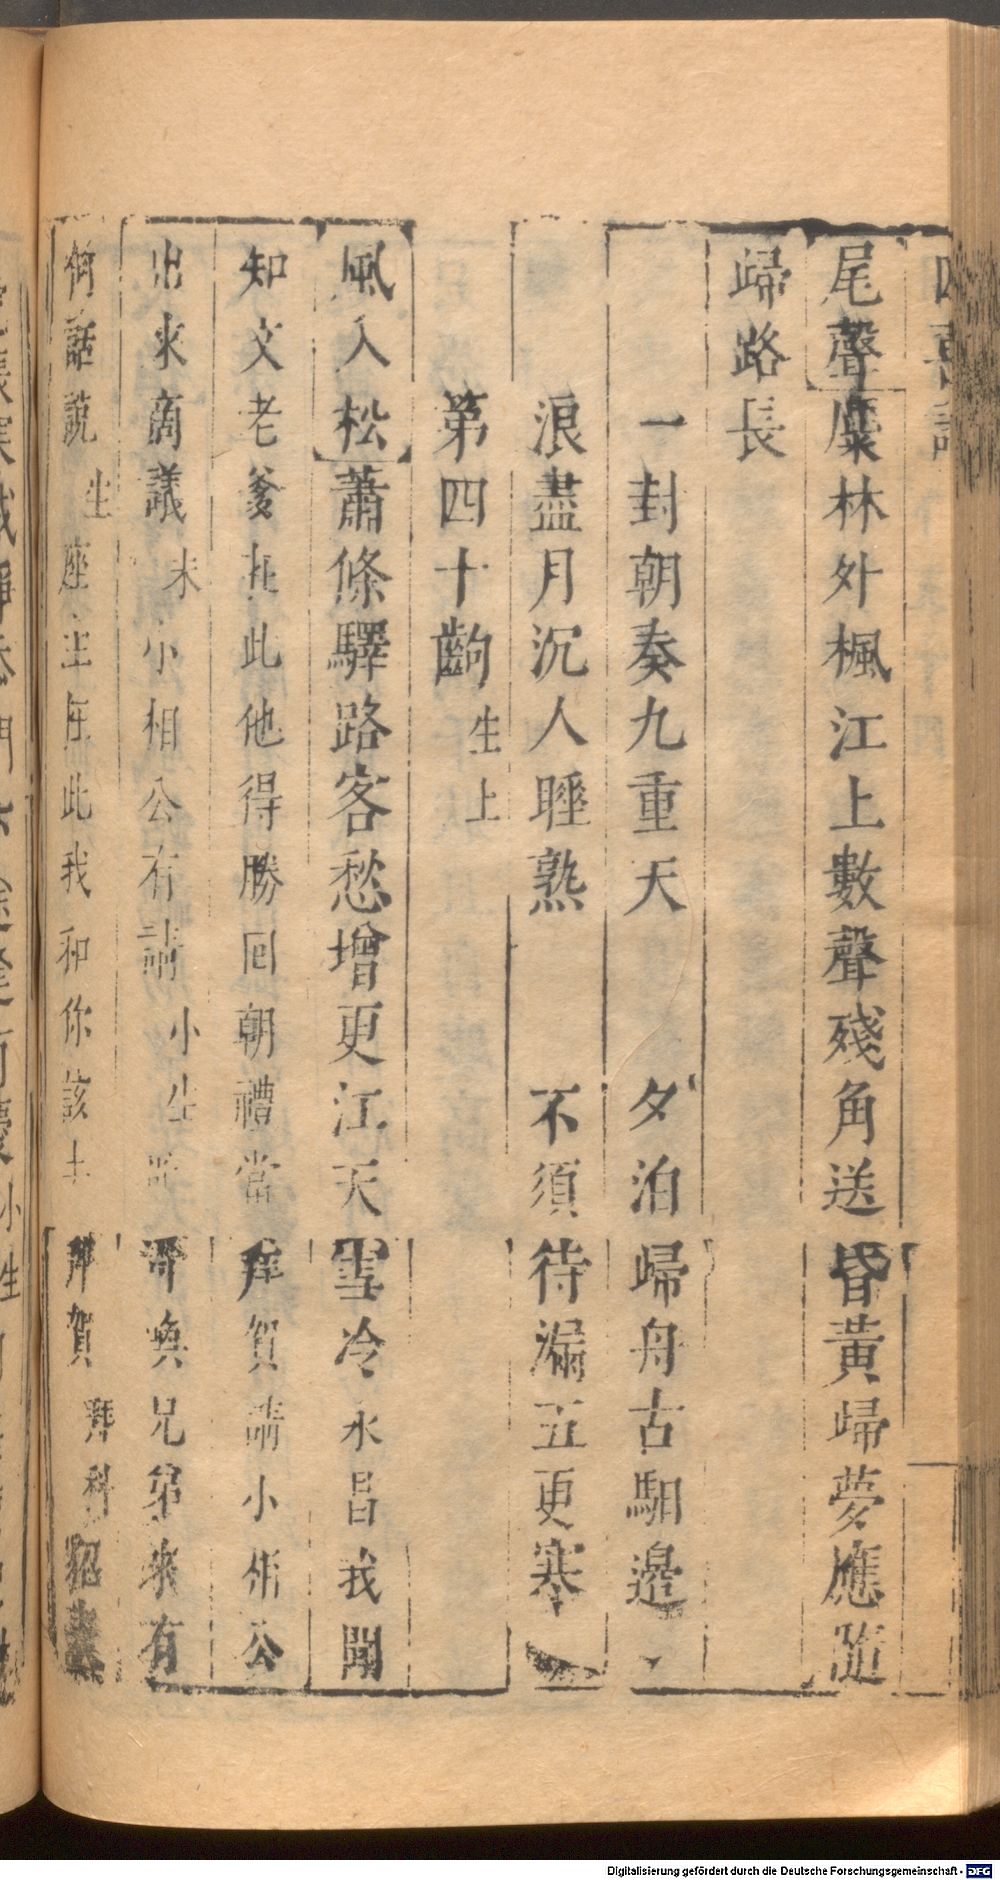 尾聲麋林外楓江上數聲殘角送昏黃歸夢應隨
歸路長
一封朝奏九重天 夕泊歸舟古驛邊
浪盡月沉人睡熟 不須待漏五更寒
第四十齣 生上
風入松蕭條驛路客愁增更江天雪冷永昌我聞
知文老爹在此他得勝回朝禮當拜賀請小相公
出來商議 末 小相公有請 小生 哥哥喚兄弟來有
何話說 生 座主在此我和你該去拜賀
Digitalisierung gefördert durch die Deutsche Forschungsgemeinschaft - DFG